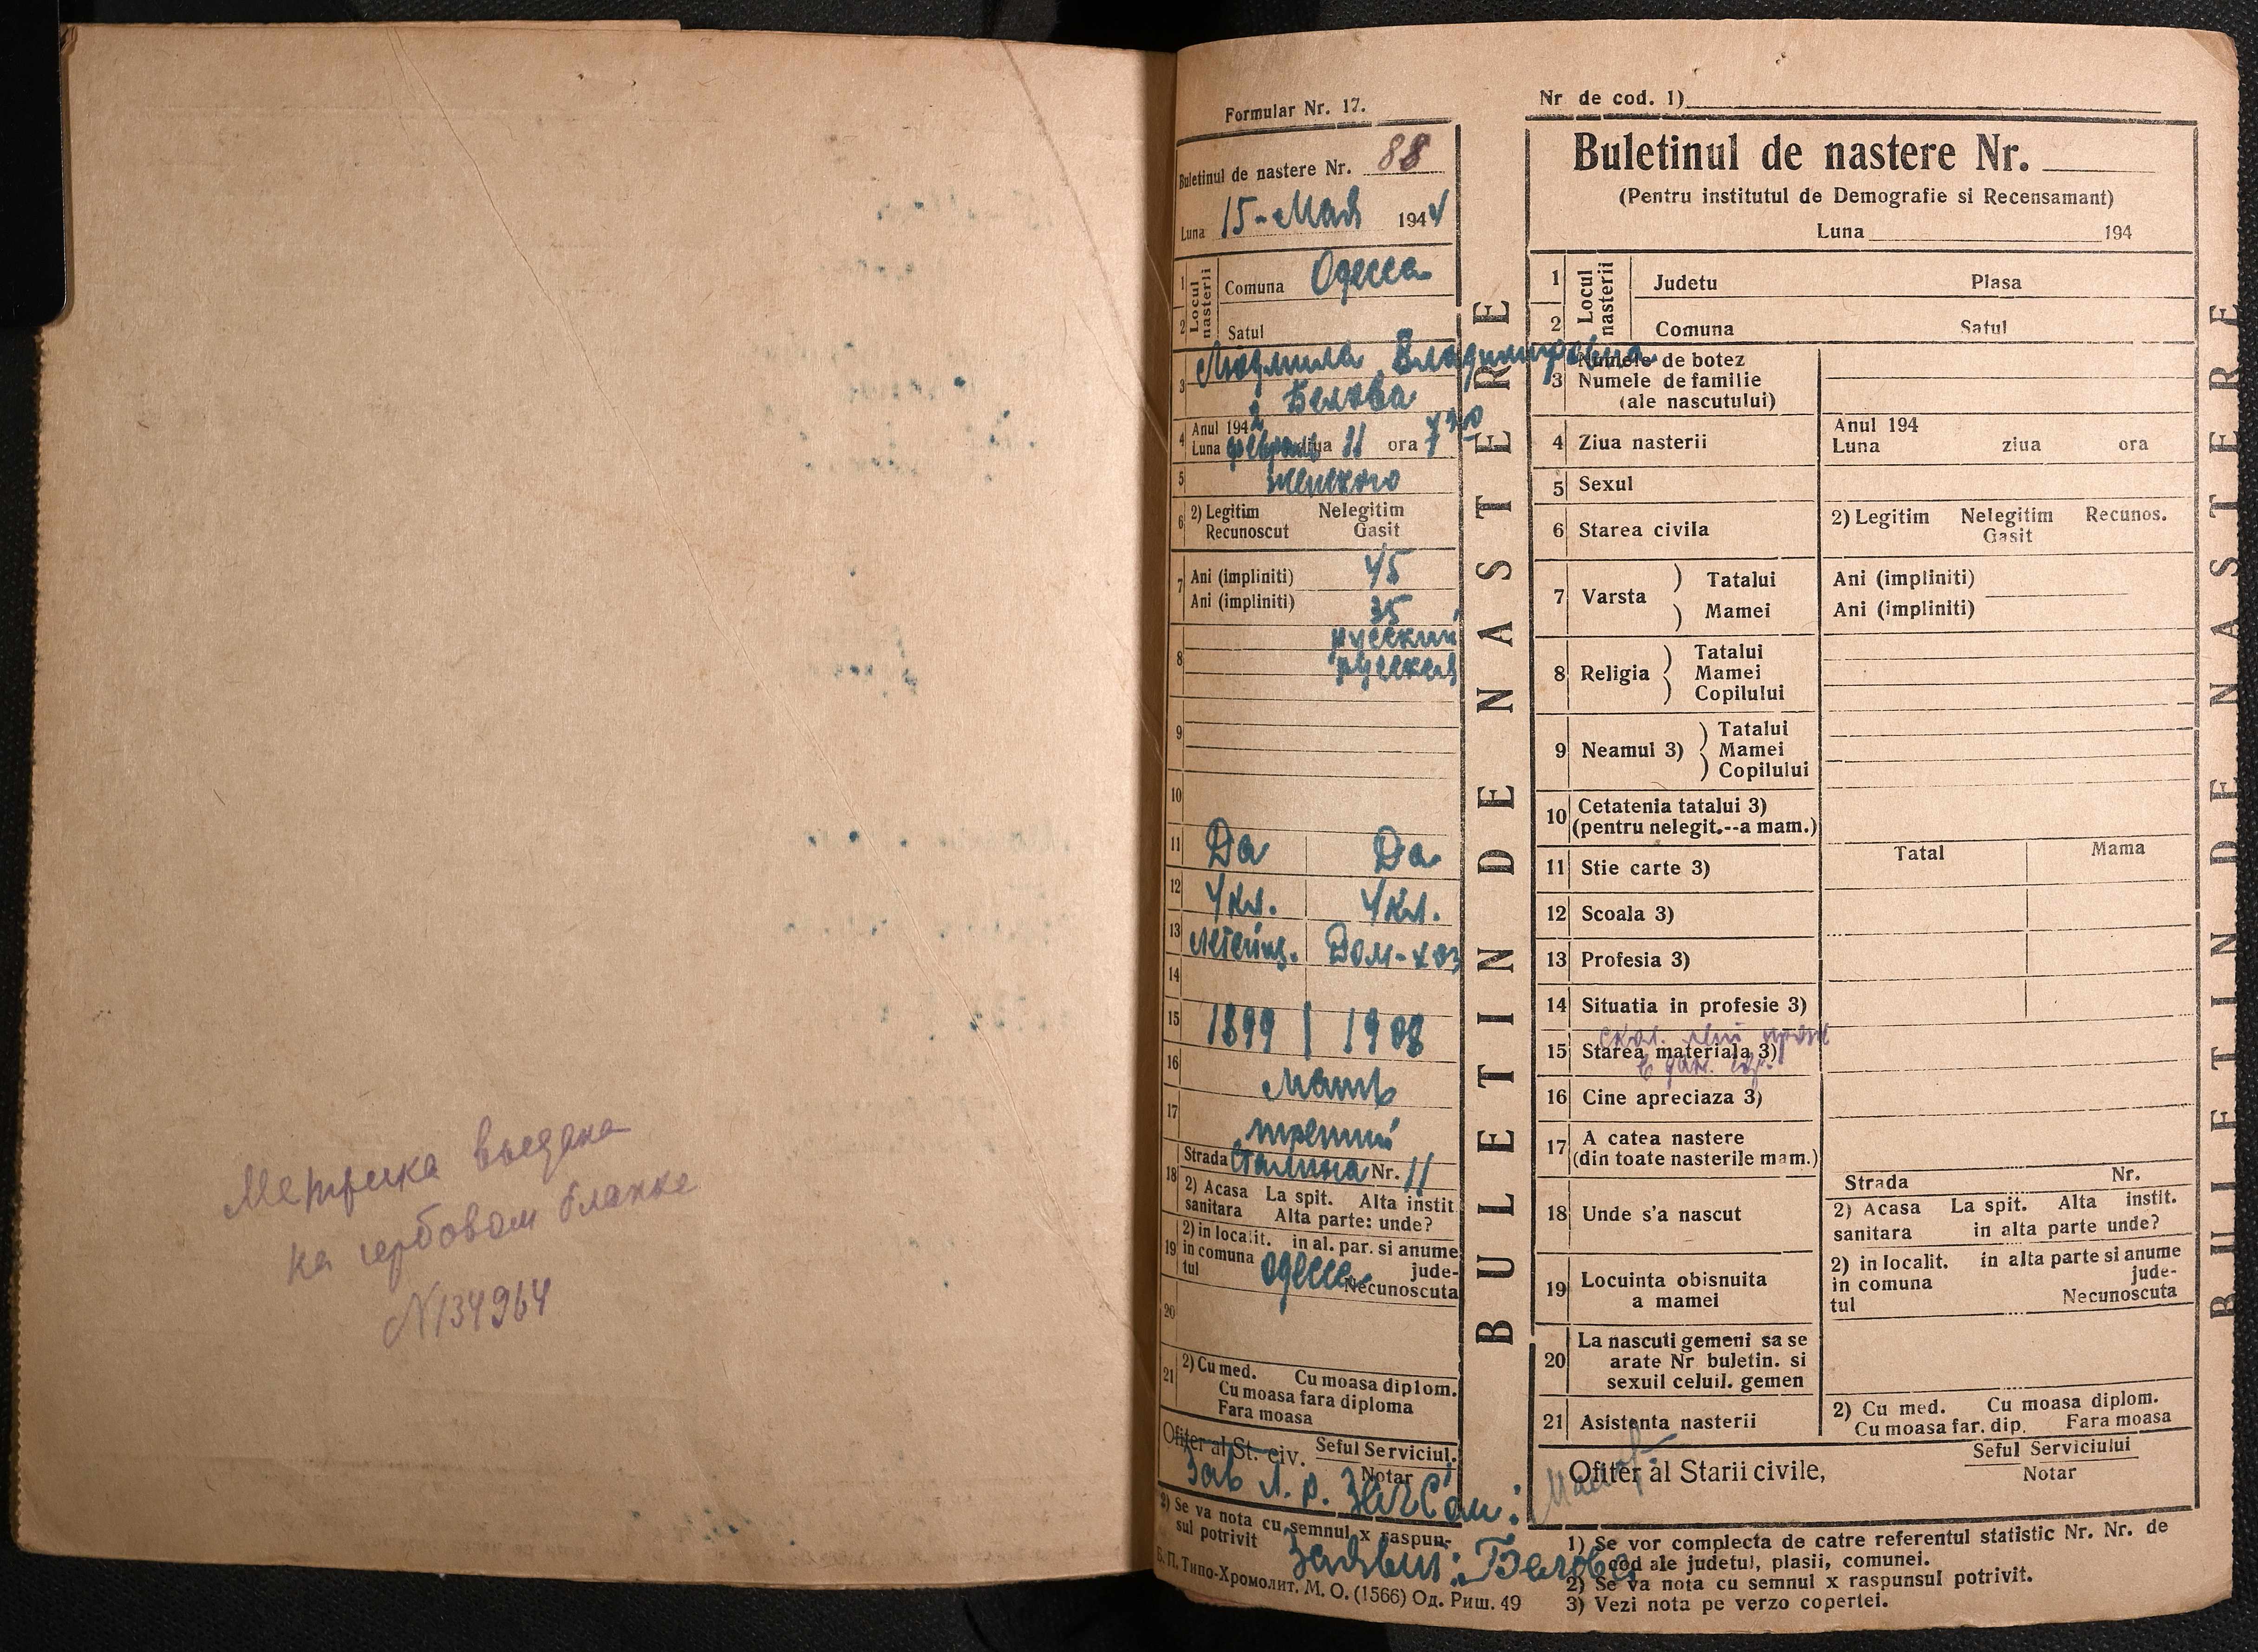 Метрика выдана
на гербовом бланке
N134964
Formular Nr. 17.
Buletinul de nastere Nr. 88
Luna 15-Мая 1944
1 Locul nasterii Comuna Одесса
2 Satul
3 Людмила Владимировна
Белова
4 Anul 1942
Luna февраль ziua 11 ora 7 30
5 женского
6 2) Legitim Nelegitim
Recunoscut Gasit
7 Ani (impliniti) 45
Ani (impliniti) 35
8 русский
русская
9
10
11 Да Да
12 4 кл. 4 кл.
13 литейщ. Дом-хоз
14
15 1899 1908
16 мать
17 третий
18 Strada Сталина Nr. 11
2) Acasa La spit. Alta instit
sanitara Alta parte: unde?
19 2) in localit. in al. par. si anume
in comuna Одесса jude-
tul Necunoscuta
20
21 2) Cu med. Cu moasa diplom.
Cu moasa fara diploma
Fara moasa
Ofiter al St. civ. Seful Serviciul.
Notar
Зав Л. р. ЗАГСом:
2) Se va nota cu semnul x raspun-
sul potrivit
Заявил: Белова
Б. П. Типо-Хромолит. М. О. (1566) Од. Риш. 49
BULETIN DE NASTERE
Nr de cod. 1)
Buletinul de nastere Nr.
(Pentru institutul de Demografie si Recensamant)
Luna 194
1 Locul nasterii Judetu Plasa
2 Comuna Satul
3 Numele de botez
Numele de familie
(ale nascutului)
4 Ziua nasterii Anul 194
Luna ziua ora
5 Sexul
6 Starea civila 2) Legitim Nelegitim Recunos.
Gasit
7 Varsta Tatalui Ani (impliniti)
Mamei Ani (impliniti)
8 Religia Tatalui
Mamei
Copilului
9 Neamul 3) Tatalui
Mamei
Copilului
10 Cetatenia tatalui 3)
(pentru nelegit.--a mam.)
11 Stie carte 3) Tatal Mama
12 Scoala 3)
13 Profesia 3)
14 Situatia in profesie 3)
15 Starea materiala 3)
16 Cine apreciaza 3)
17 A catea nastere
(din toate nasterile mam.)
18 Unde s'a nascut Strada Nr.
2) Acasa La spit. Alta instit.
sanitara in alta parte unde?
19 Locuinta obisnuita
a mamei
2) in localit. in alta parte si anume
in comuna jude-
tul Necunoscuta
20 La nascuti gemeni sa se
arate Nr buletin. si
sexuil celuil. gemen
21 Asistenta nasterii 2) Cu med. Cu moasa diplom.
Cu moasa far. dip. Fara moasa
Ofiter al Starii civile, Seful Serviciului
Notar
1) Se vor complecta de catre referentul statistic Nr. Nr. de
cod ale judetul, plasii, comunei.
2) Se va nota cu semnul x raspunsul potrivit.
3) Vezi nota pe verzo copertei.
BULETIN DE NASTERE